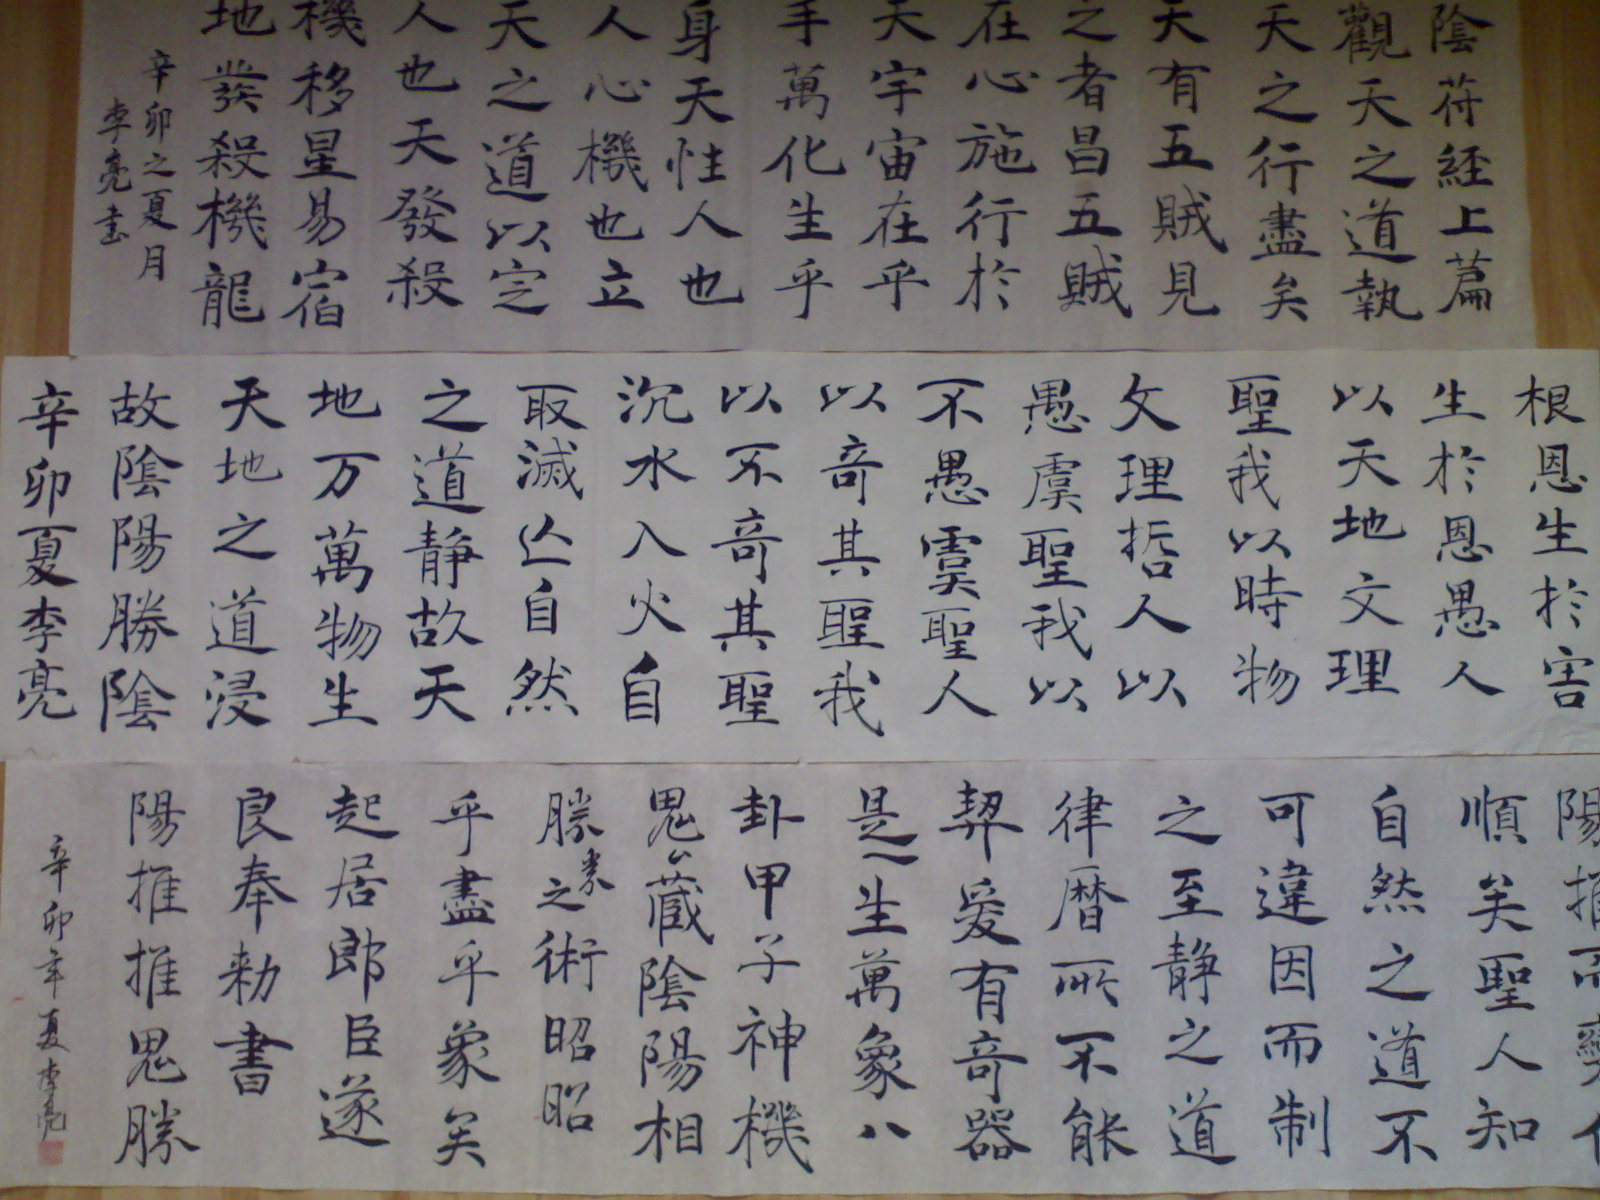 陰符經上篇
觀天之道執
天之行盡矣
天有五賊見
之者昌五賊
在心施行於
天宇宙在乎
手萬化生乎
身天性人也
人心機也立
天之道以定
人也天發殺
機移星易宿
地發殺機龍
辛卯之夏月
李亮书
根恩生於害
生於恩愚人
以天地文理
聖我以時物
文理哲人以
愚虞聖我以
不愚虞聖人
以奇其聖我
以不奇其聖
沉水入火自
取滅亾自然
之道静故天
地万萬物生
天地之道浸
故陰陽勝陰
辛卯夏李亮
陽推而變化
順矣聖人知
自然之道不
可違因而制
之至静之道
律暦所不能
契爰有奇器
是生萬象八
卦甲子神機
鬼藏陰陽相
勝之術昭昭
乎盡乎象矣
起居郎臣遂
良奉勑書
陽推推鬼勝
辛卯年夏李亮